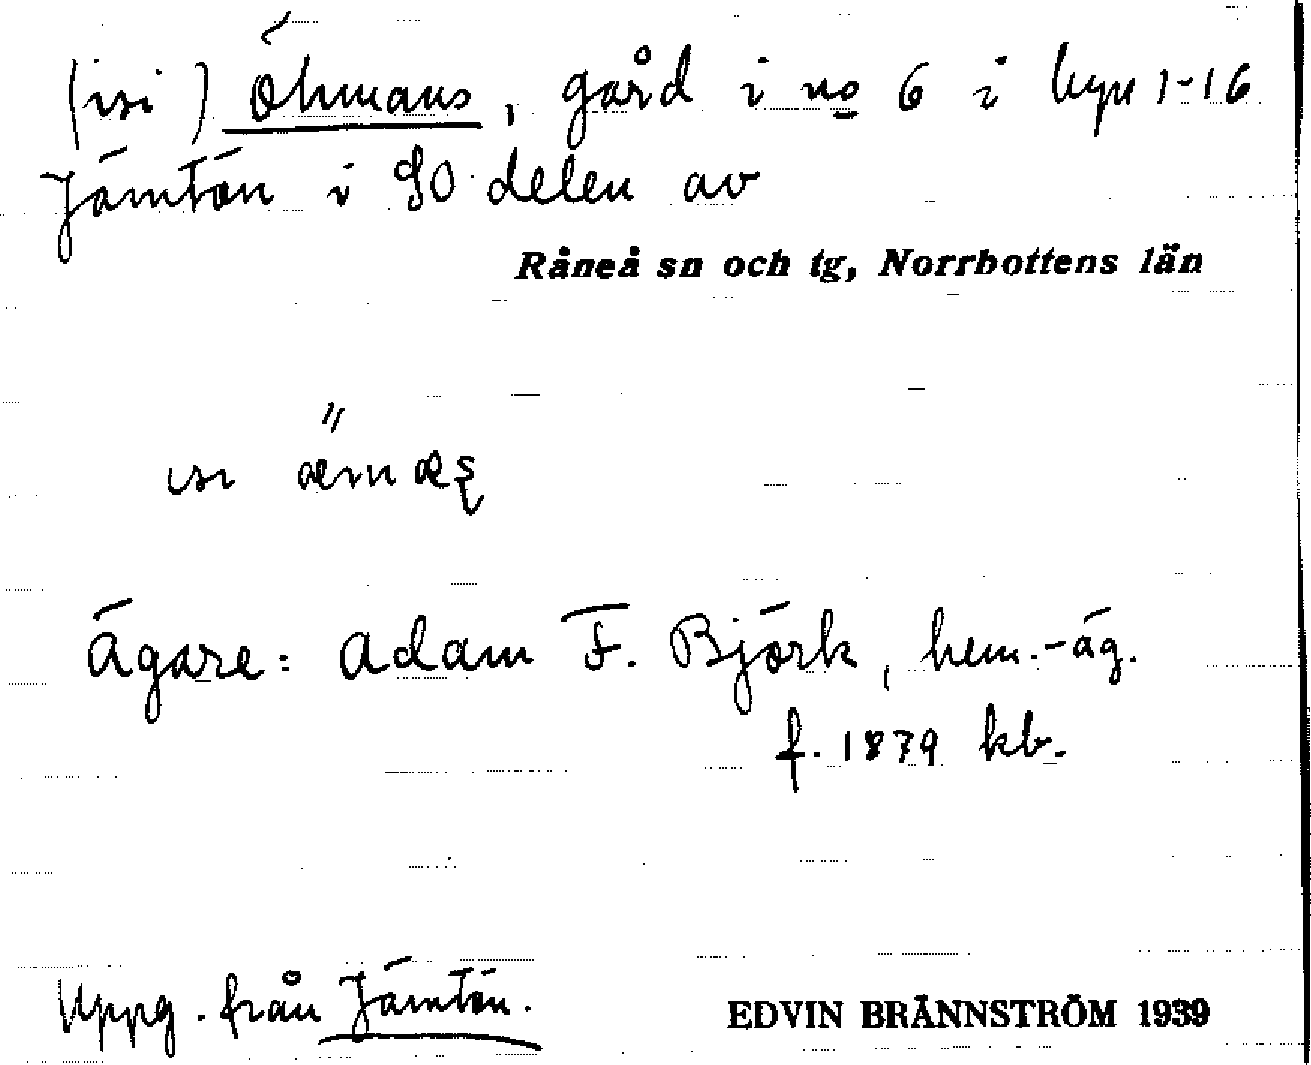 (isi) Öhmans, gård i no 6 i byn 1-16
Jämtön i SO delen av
Råneå sn och tg, Norrbottens län
ısı
Ägare: Adam F. Björk, hem.-äg.
f. 1879 kb.
Uppg. från Jämtön.
EDVIN BRÄNNSTRÖM 1939